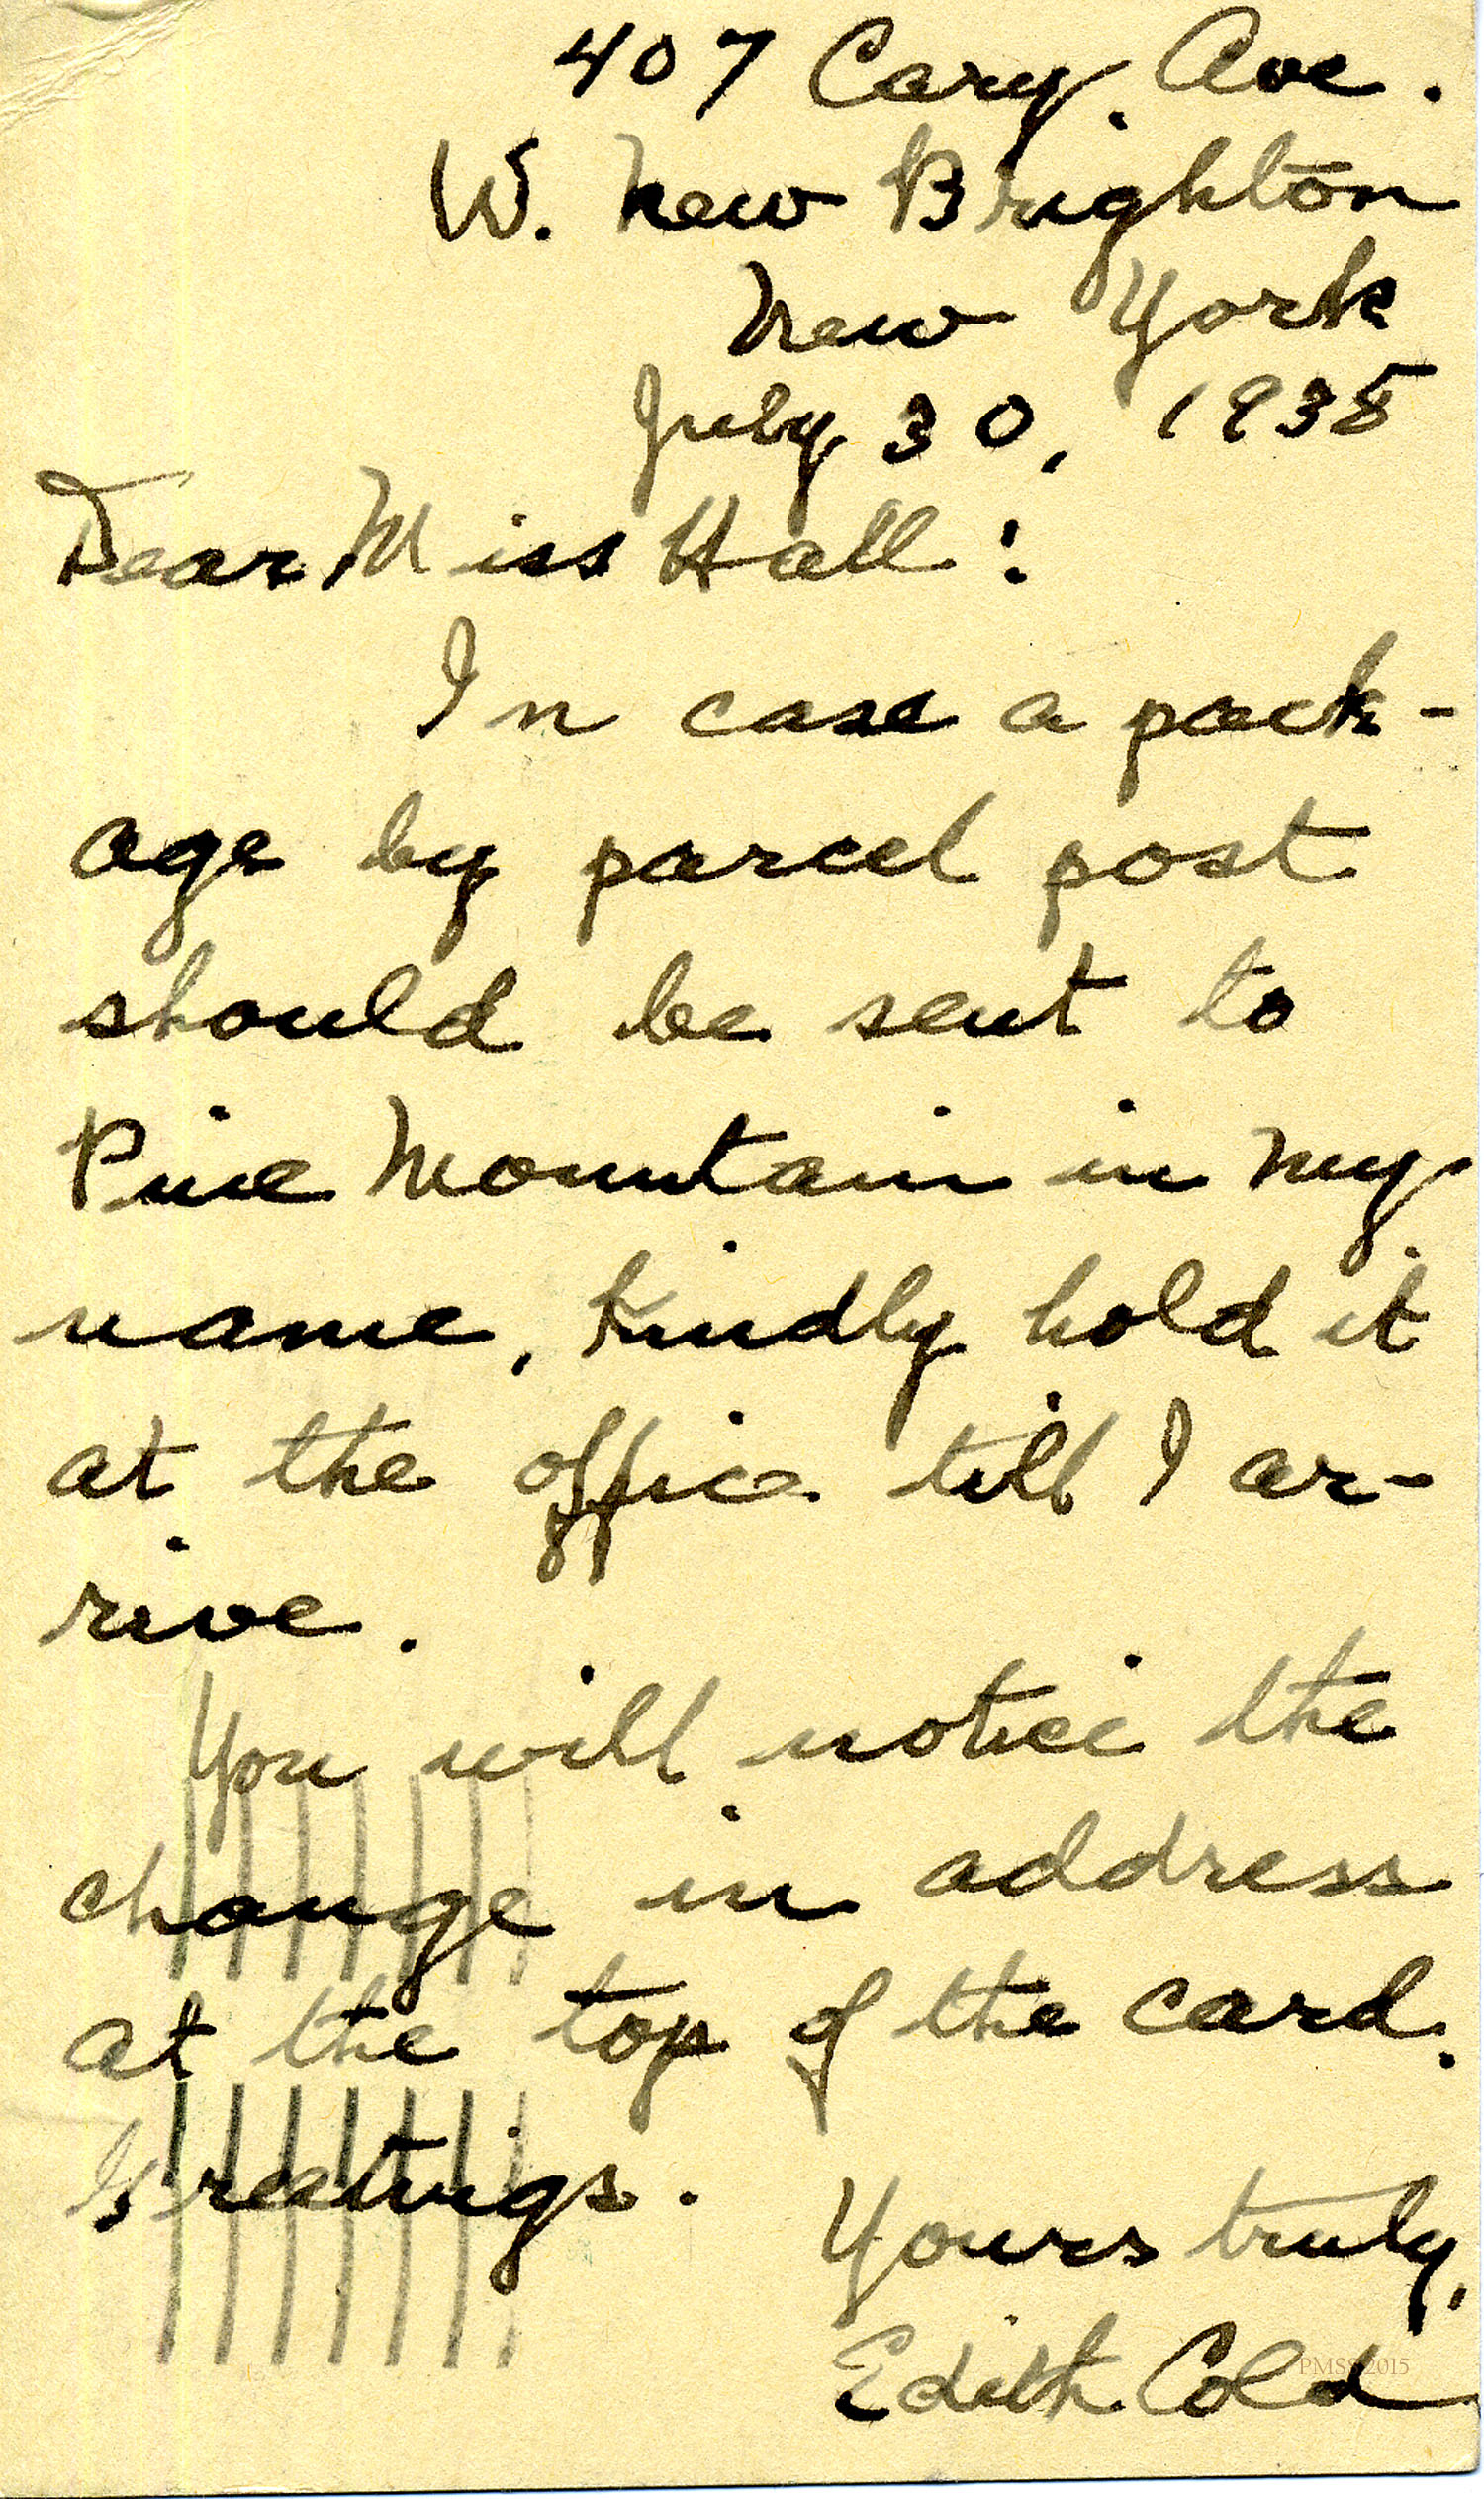 407 Cary Ave.
W. New Brighton
New York
July 30, 1935
Dear Miss Hall:
In case a pack-
age by parcel post
should be sent to
Pine Mountain in my
name, kindly hold it
at the office till I ar-
rive.
You will notice the
change in address
at the top of the card.
Greetings.
Yours truly,
Edith Cold
PMSS 2015